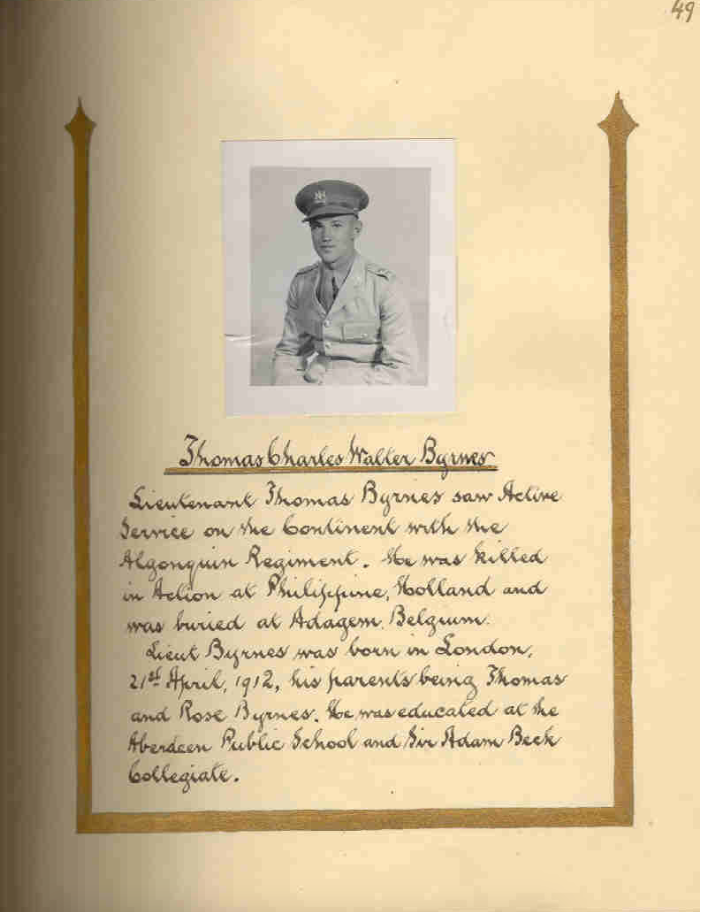 49
Thomas Charles Walter Byrnes
Lieutenant Thomas Byrnes saw Active
Service on the Continent with the
Algonquin Regiment. He was killed
in Action at Philippine, Holland and
was buried at Adagem, Belgium.
Lieut Byrnes was born in London,
21st April, 1912, his parents being Thomas
and Rose Byrnes. He was educated at the
Aberdeen Public School and Sir Adam Beck
Collegiate.